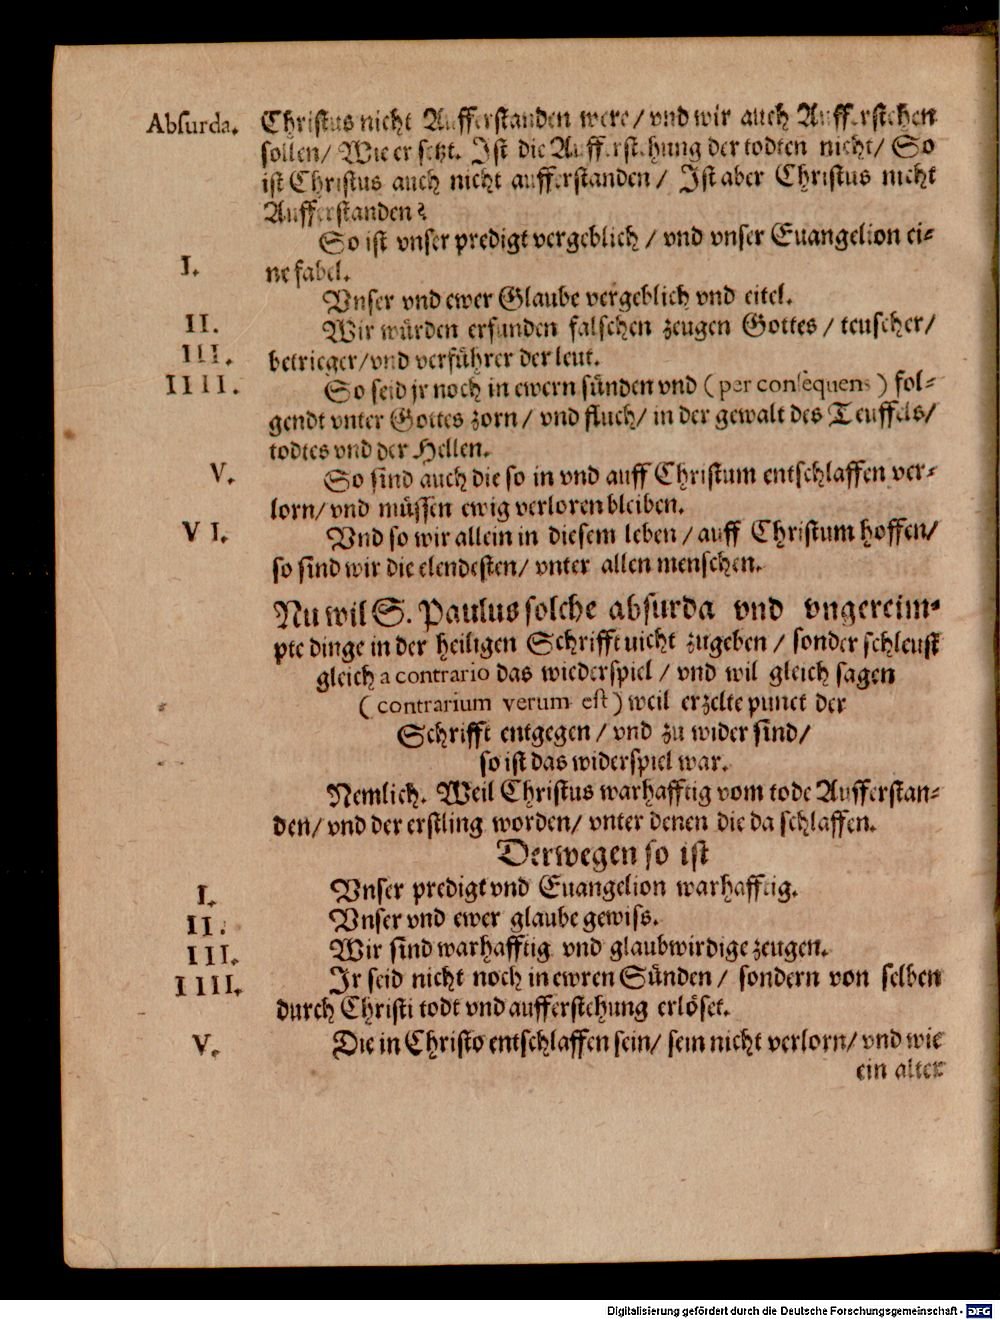 Absurda. Christus nicht Aufferstanden were / vnd wir auch Aufferstehen
sollen / Wie er setzt. Ist die Aufferstehung der todten nicht / So
ist Christus auch nicht aufferstanden / Ist aber Christus nicht
Aufferstanden?
So ist vnser predigt vergeblich / vnd vnser Euangelion ei-
I. ne fabel.
Vnser vnd ewer Glaube vergeblich vnd eitel.
II. Wir würden erfunden falschen zeugen Gottes / teuscher /
III. betrieger / vnd verführer der leut.
IIII. So seid jr noch in ewern sünden vnd ( per consequens ) fol-
gendt vnter Gottes zorn / vnd fluch / in der gewalt des Teuffels /
todtes vnd der Hellen.
V. So sind auch die so in vnd auff Christum entschlaffen ver-
lorn / vnd müssen ewig verloren bleiben.
VI. Vnd so wir allein in diesem leben / auff Christum hoffen /
so sind wir die elendesten / vnter allen menschen.
Nu wil S. Paulus solche absurda vnd vngereim-
pte dinge in der heiligen Schrifft nicht zugeben / sonder schleust
gleich a contrario das wiederspiel / vnd wil gleich sagen
( contrarium verum est ) weil erzelte punct der
Schrifft entgegen / vnd zu wider sind /
so ist das widerspiel war.
Nemlich. Weil Christus warhafftig vom tode Aufferstan-
den / vnd der erstling worden / vnter denen die da schlaffen.
Derwegen so ist
I. Vnser predigt vnd Euangelion warhafftig.
II. Vnser vnd ewer glaube gewiss.
III. Wir sind warhafftig vnd glaubwirdige zeugen.
IIII. Ir seid nicht noch in ewren Sünden / sondern von selben
durch Christi todt vnd aufferstehung erlöset.
V. Die in Christo entschlaffen sein / sein nicht verlorn / vnd wie
ein alter
Digitalisierung gefördert durch die Deutsche Forschungsgemeinschaft - DFG